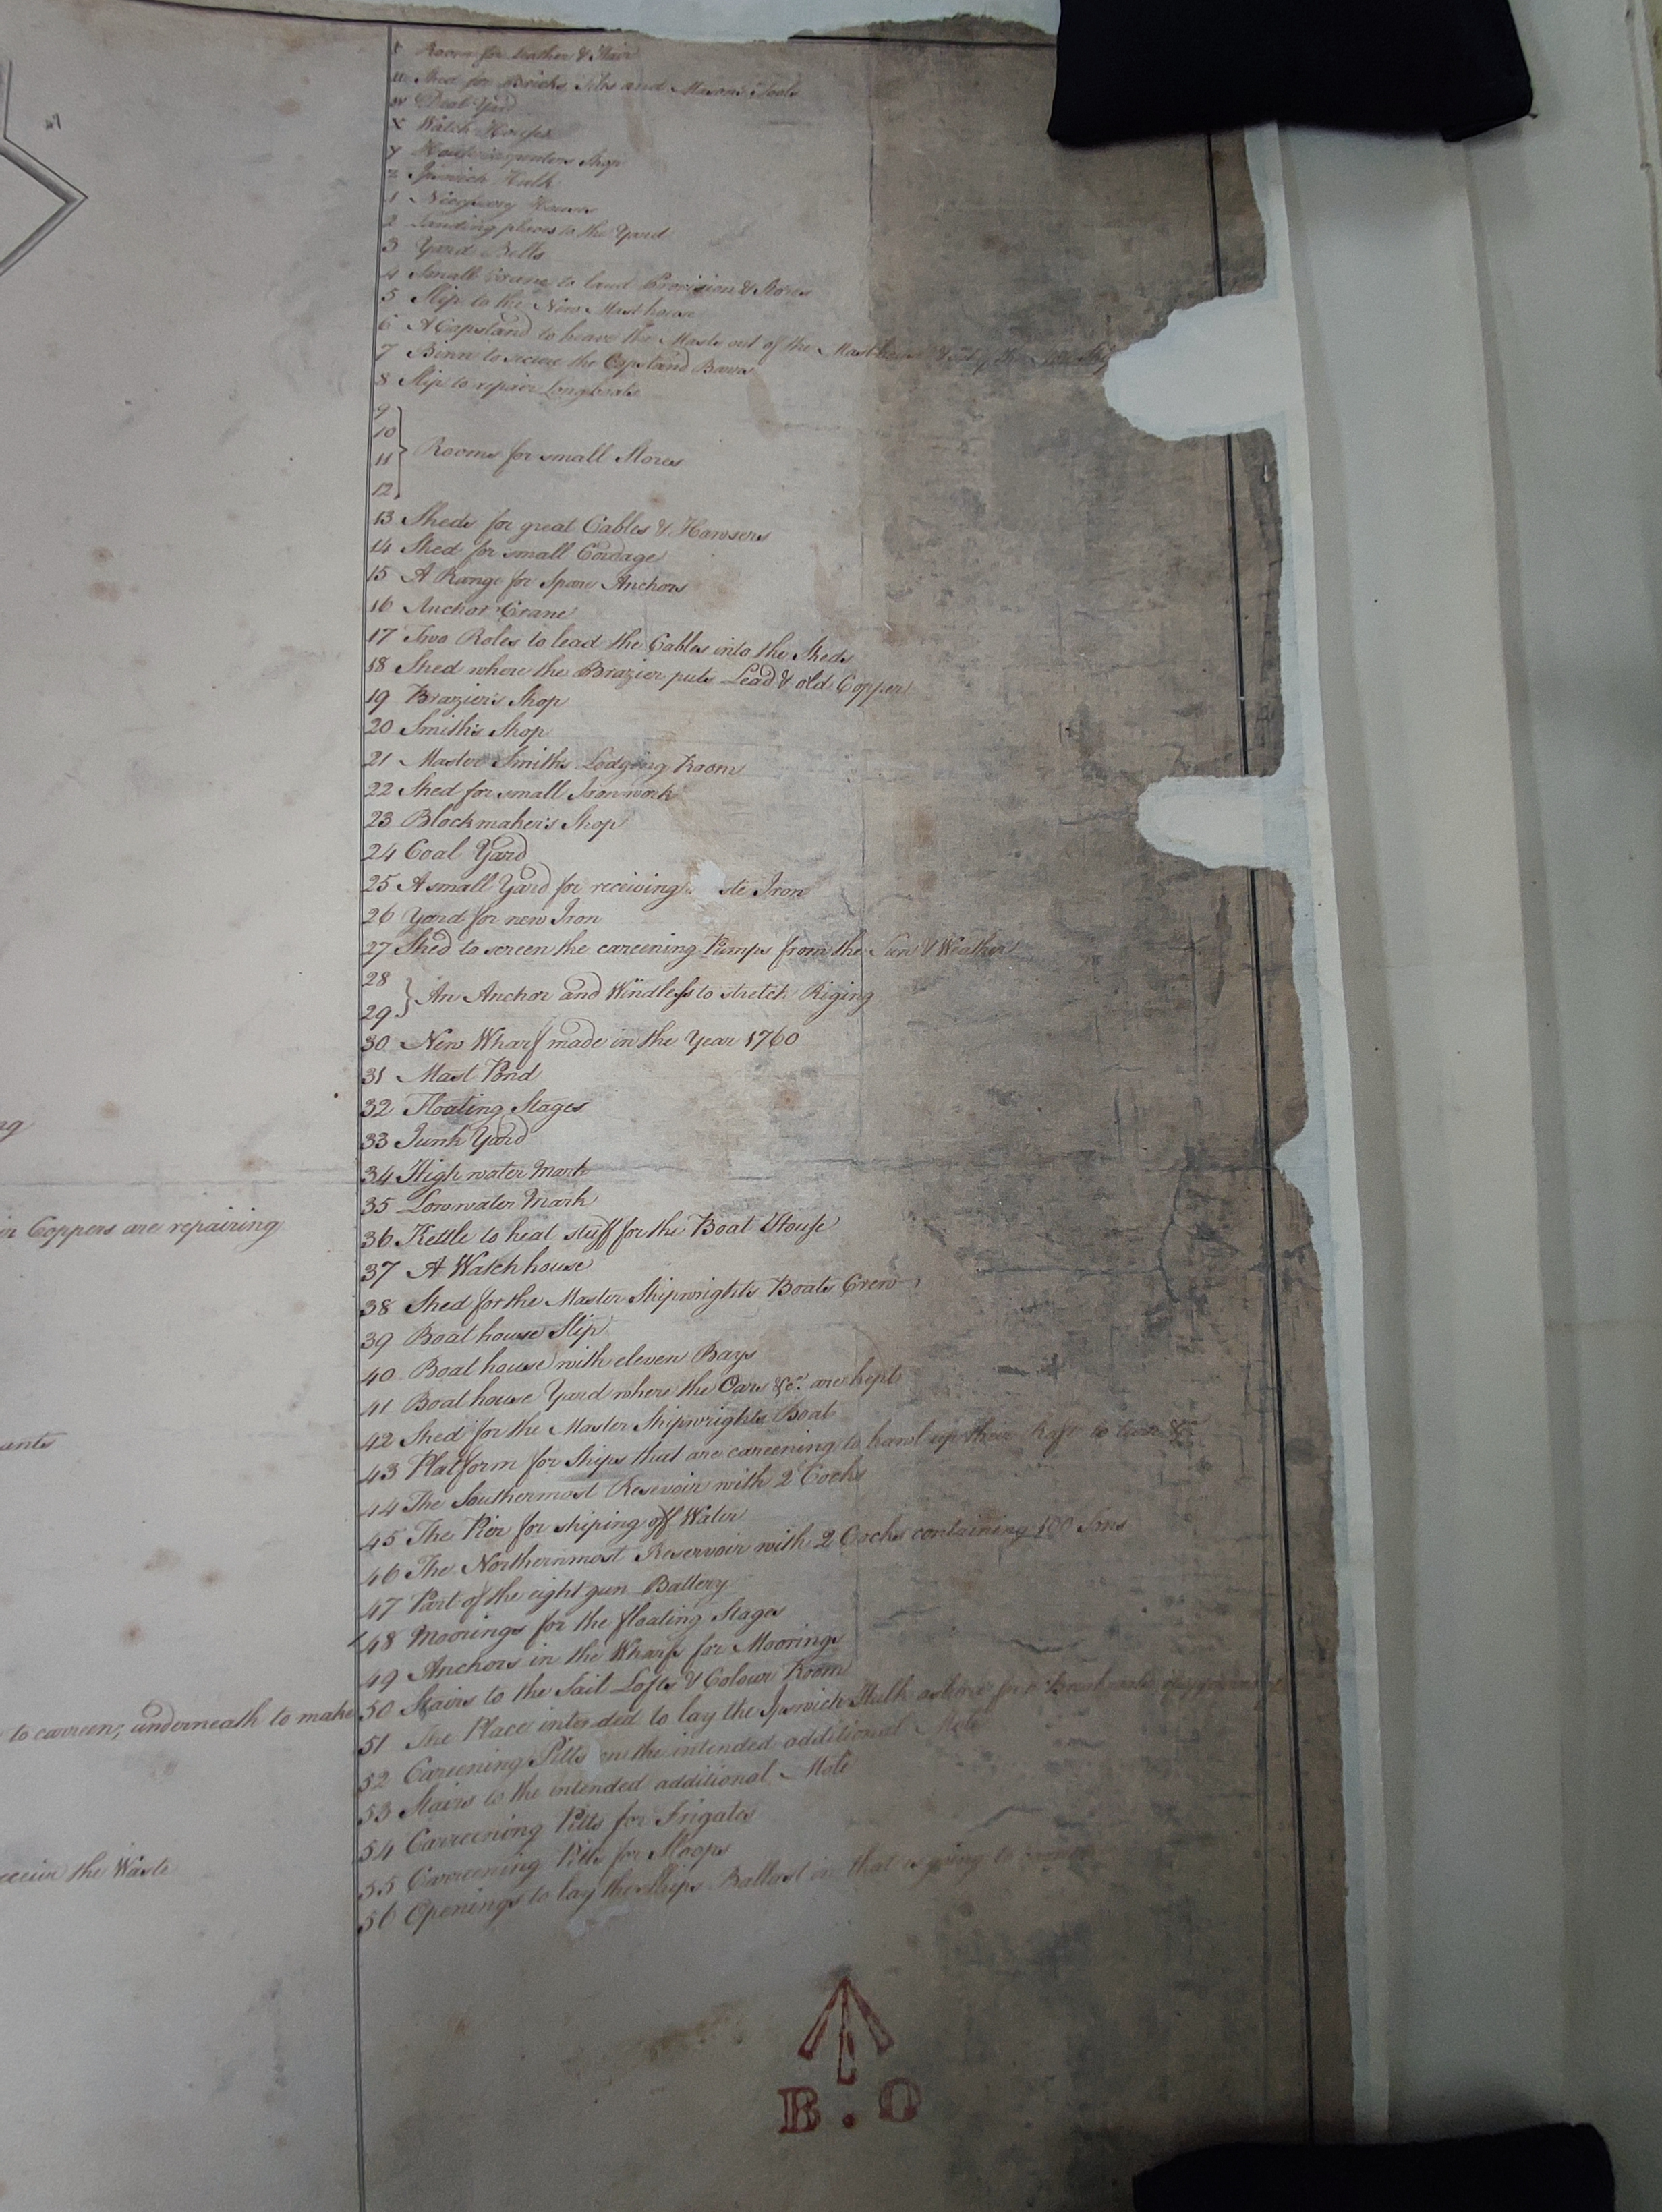 t Room for Leather & Hair
u Shed for Bricks, Tiles and Masons Tools
w Deal Yard
x Watch Houses
y Housecarpenters Shop
z Ipswich Hulk
1 Necessary Houses
2 Landing places to the Yard
3 Yard Bells
4 Small Crane to land Provision & Stores
5 Slip to the New Masthouse
6 A Capstand to heave the Masts out of the Masthouse & out of the
7 Binn to secure the Capstand Barrs
8 Slip to repair Longboats
9
10
11 Rooms for small Stores
12
13 Sheds for great Cables & Hawsers
14 Shed for small Cordage
15 A Range for Spare Anchors
16 Anchor Crane
17 Two Roles to lead the Cables into the Sheds
18 Shed where the Brazier puts Lead & old Copper
19 Brazier's Shop
20 Smith's Shop
21 Master Smiths Lodging Room
22 Shed for small Ironwork
23 Blockmaker's Shop
24 Coal Yard
25 A small Yard for receiving ste Iron
26 Yard for new Iron
27 Shed to screen the careening Pumps from the Sun & Weather
28
29 An Anchor and Windless to stretch Riging
30 New Wharf made in the Year 1760
31 Mast Pond
32 Floating Stages
33 Junk Yard
34 High water Mark
35 Low water Mark
36 Kettle to heat stuff for the Boat House
37 A Watch house
38 Shed for the Master Shipwrights Boats Crew
39 Boat house Slip
40 Boat house with eleven Bays
41 Boat house Yard where the Oars &c. are kept
42 Shed for the Master Shipwrights Boat
43 Platform for Ships that are careening to hawl up their Raft to &c
44 The Southermost Reservoir with 2 Cocks
45 The Pier for shiping off Water
46 The Northernmost Reservoir with 2 Cocks containing 100 Tons
47 Part of the eight gun Battery
48 Moorings for the floating Stages
49 Anchors in the Wharf for Moorings
50 Stairs to the Sail Lofts & Colour Room
51 The Place intended to lay the Ipswich Hulk as for a Breakwater
52 Careening Pitts on the intended additional Mole
53 Stairs to the intended additional Mole
54 Carreening Pitts for Frigates
55 Carreening Pitts for Sloops
56 Openings to lay the Ships Ballast in that is going to
ng
ir Coppers are repairing
ants
to careen; underneath to make
receive the Waste
B.O